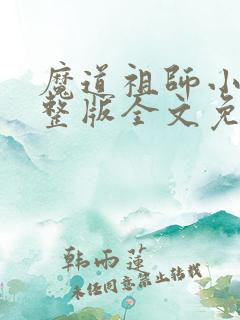 魔道祖師小
整版全文免
韩雨莲
未经同意禁止转载